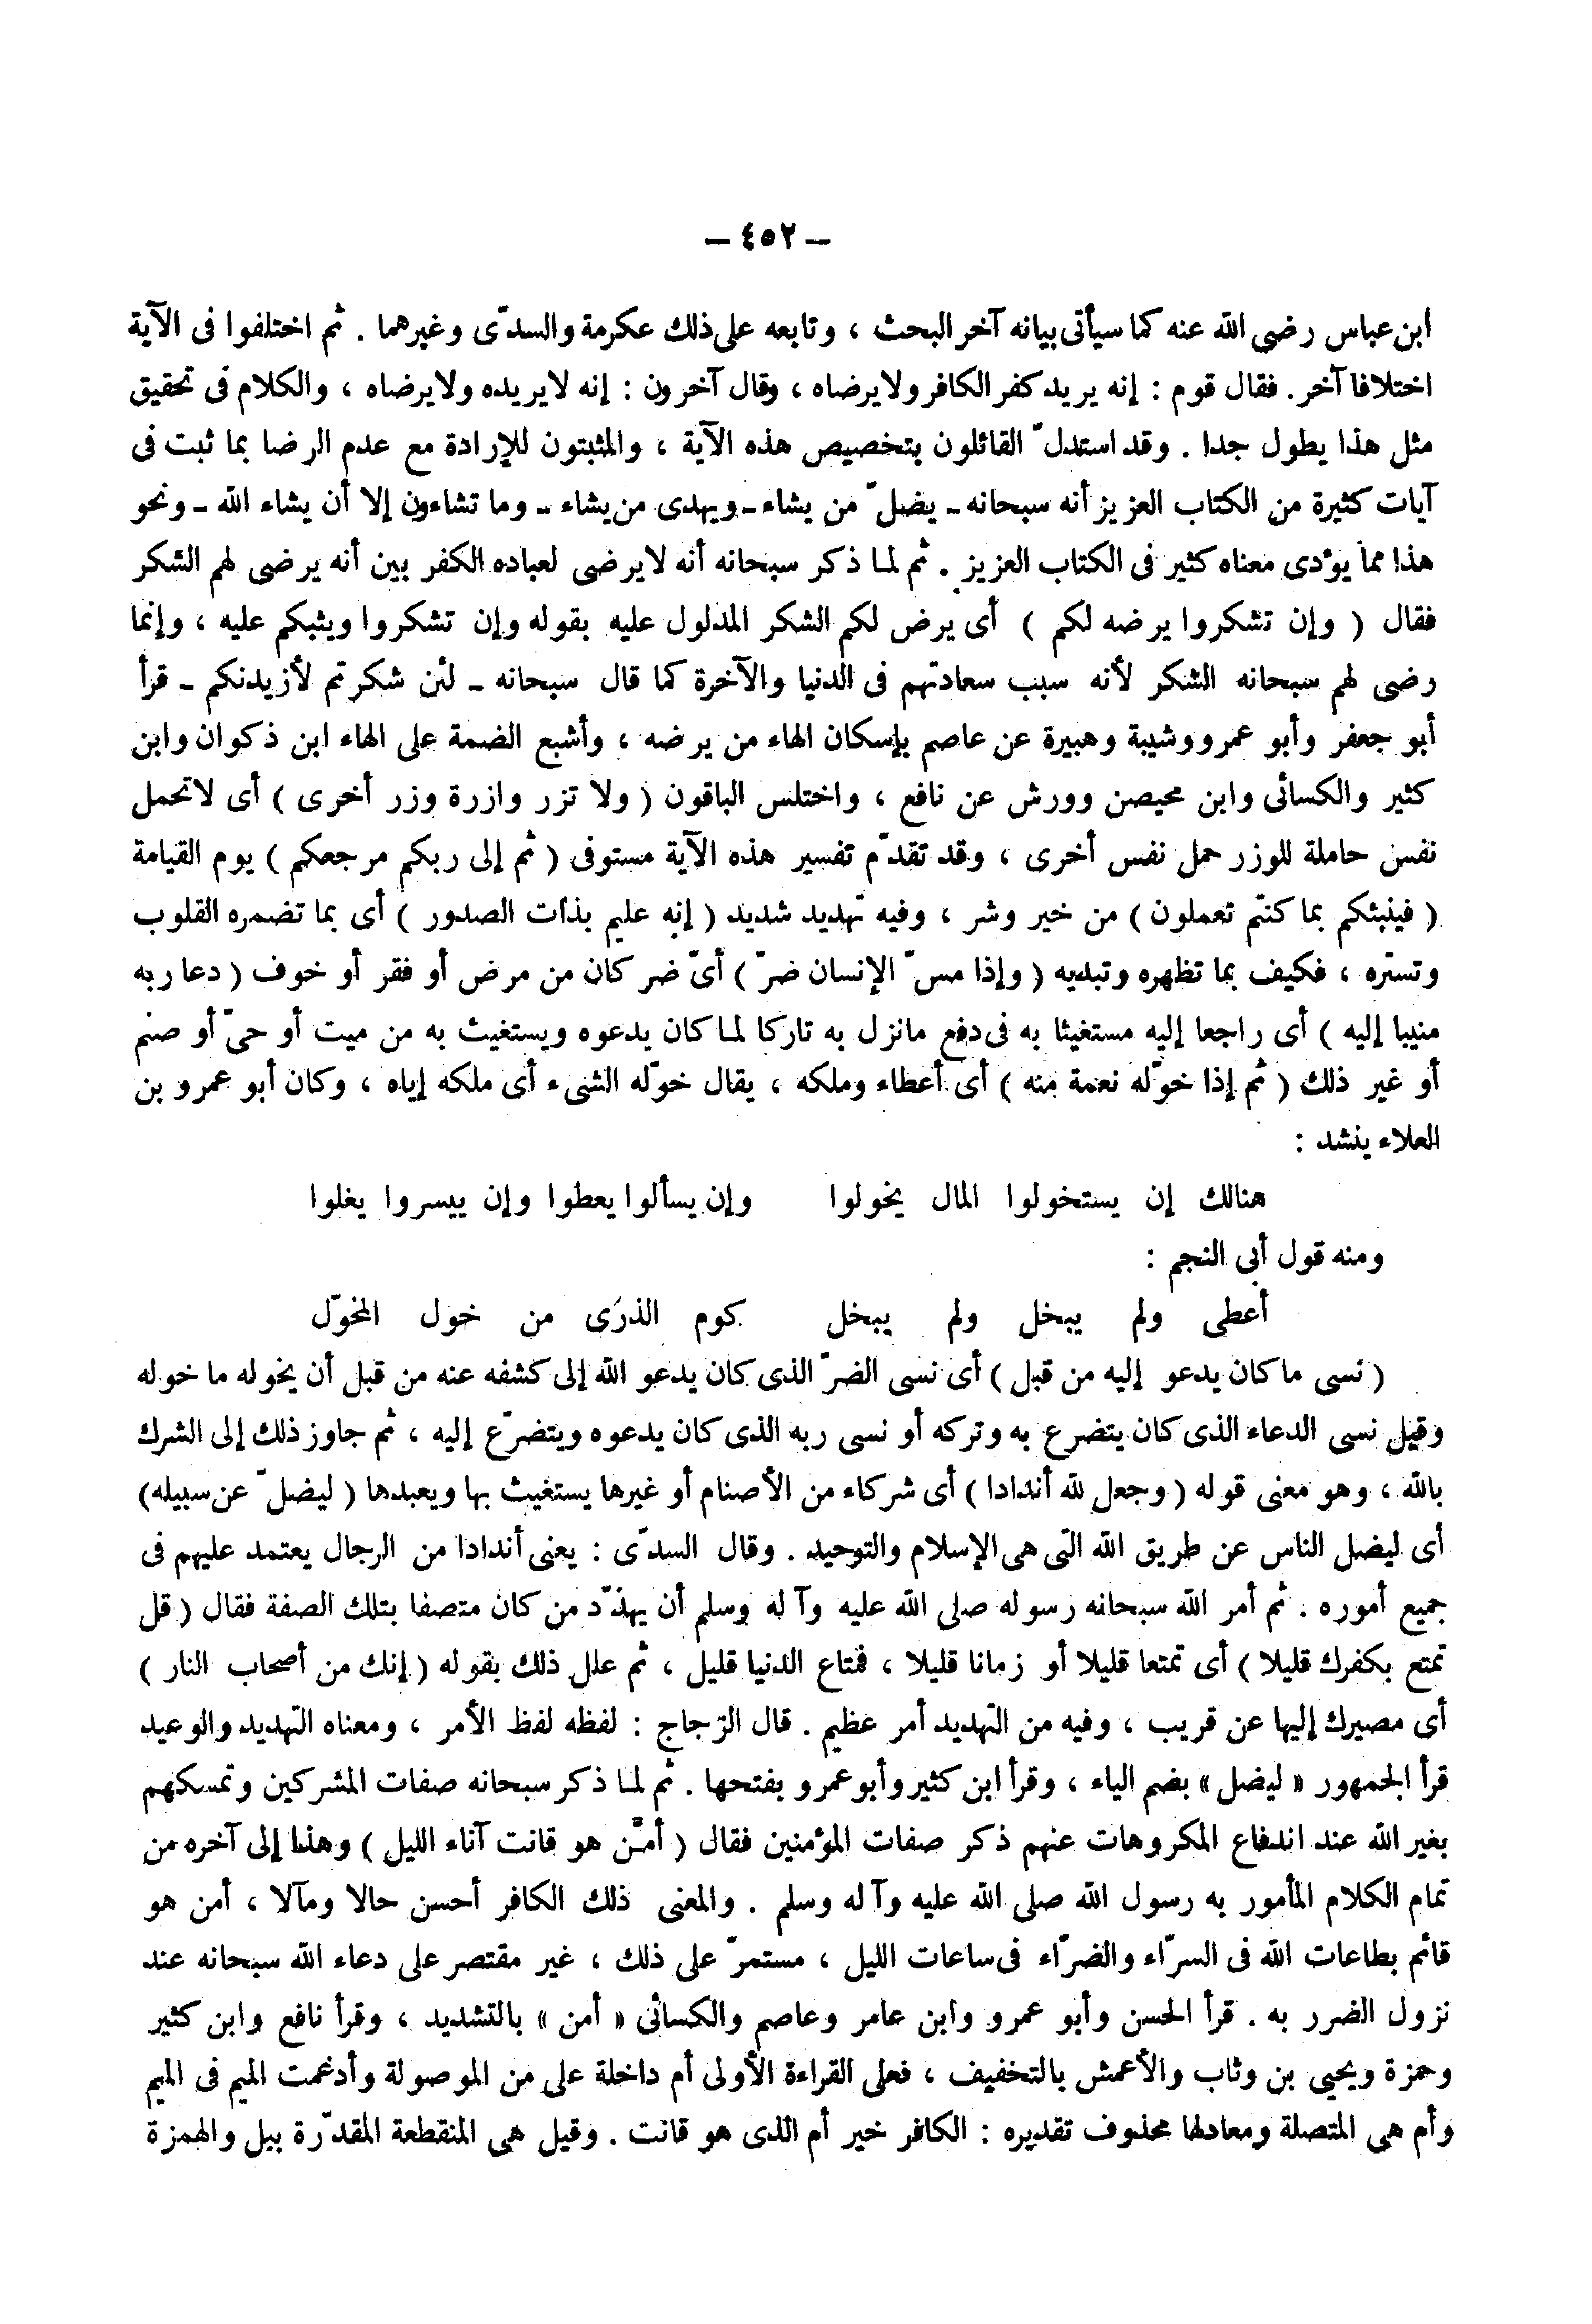 – ٤٥٢ –
ابن عباس رضى الله عنه كما سيأتى بيانه آخر البحث ، وتابعه على ذلك عكرمة والسدّى وغيرهما . ثم اختلفوا فى الآية
اختلافا آخر. فقال قوم : إنه يريد كفر الكافر ولايرضاه ، وقال آخرون : إنه لايريده ولايرضاه ، والكلام فى تحقيق
مثل هذا يطول جدا . وقد استدلّ القائلون بتخصيص هذه الآية ، والمثبتون للإرادة مع عدم الرضا بما ثبت فى
آيات كثيرة من الكتاب العزيز أنه سبحانه ـ يضلّ من يشاء ـ ويهدى من يشاء ـ وما تشاءون إلا أن يشاء الله ـ ونحو
هذا مما يؤدى معناه كثير فى الكتاب العزيز . ثم لما ذكر سبحانه أنه لايرضى لعباده الكفر بين أنه يرضى لهم الشكر
فقال ( وإن تشكروا يرضه لكم ) أى يرض لكم الشكر المدلول عليه بقوله وإن تشكروا ويثبكم عليه ، وإنما
رضى لهم سبحانه الشكر لأنه سبب سعادتهم فى الدنيا والآخرة كما قال سبحانه ـ لئن شكرتم لأزيدنكم ـ قرأ
أبو جعفر وأبو عمرو وشيبة وهبيرة عن عاصم بإسكان الهاء من يرضه ، وأشبع الضمة على الهاء ابن ذكوان وابن
كثير والكسائى وابن محيصن وورش عن نافع ، واختلس الباقون ( ولا تزر وازرة وزر أخرى ) أى لاتحمل
نفس حاملة للوزر حمل نفس أخرى ، وقد تقدّم تفسير هذه الآية مستوفى ( ثم إلى ربكم مرجعكم ) يوم القيامة
( فينبئكم بما كنتم تعملون ) من خير وشر ، وفيه تهديد شديد ( إنه عليم بذات الصدور ) أى بما تضمره القلوب
وتستره ، فكيف بما تظهره وتبديه ( وإذا مسّ الإنسان ضرّ ) أىّ ضر كان من مرض أو فقر أو خوف ( دعا ربه
منيبا إليه ) أى راجعا إليه مستغيثا به فى دفع مانزل به تاركا لما كان يدعوه ويستغيث به من ميت أو حىّ أو صنم
أو غير ذلك ( ثم إذا خوّله نعمة منه ) أى أعطاء وملكه ، يقال خوّله الشىء أى ملكه إياه ، وكان أبو عمرو بن
العلاء ينشد :
هنالك إن يستخولوا المال يخولوا وإن يسألوا يعطوا وإن ييسروا يغلوا
ومنه قول أبى النجم :
أعطى ولم يبخل ولم يبخل كوم الذرَى من خول المخوّل
( نسى ما كان يدعو إليه من قبل ) أى نسى الضرّ الذى كان يدعو الله إلى كشفه عنه من قبل أن يخوله ما خوله
وقيل نسى الدعاء الذى كان يتضرع به وتركه أو نسى ربه الذى كان يدعوه ويتضرّع إليه ، ثم جاوز ذلك إلى الشرك
بالله ، وهو معنى قوله ( وجعل لله أندادا ) أى شركاء من الأصنام أو غيرها يستغيث بها ويعبدها ( ليضلّ عن سبيله)
أى ليضل الناس عن طريق الله التى هى الإسلام والتوحيد . وقال السدّى : يعنى أندادا من الرجال يعتمد عليهم فى
جميع أموره . ثم أمر الله سبحانه رسوله صلى الله عليه وآله وسلم أن يهدّد من كان متصفا بتلك الصفة فقال ( قل
تمتع بكفرك قليلا ) أى تمتعا قليلا أو زمانا قليلا ، فمتاع الدنيا قليل ، ثم علل ذلك بقوله ( إنك من أصحاب النار )
أى مصيرك إليها عن قريب ، وفيه من التهديد أمر عظيم . قال الزّجاج : لفظه لفظ الأمر ، ومعناه التهديد والوعيد
قرأ الجمهور « ليضل » بضم الياء ، وقرأ ابن كثير وأبو عمرو بفتحها . ثم لما ذكر سبحانه صفات المشركين وتمسكهم
بغير الله عند اندفاع المكروهات عنهم ذكر صفات المؤمنين فقال ( أمّن هو قانت آناء الليل ) وهذا إلى آخره من
تمام الكلام المأمور به رسول الله صلى الله عليه وآله وسلم . والمعنى ذلك الكافر أحسن حالا ومآلا ، أمن هو
قائم بطاعات الله فى السرّاء والضرّاء فى ساعات الليل ، مستمرّ على ذلك ، غير مقتصر على دعاء الله سبحانه عند
نزول الضرر به . قرأ الحسن وأبو عمرو وابن عامر وعاصم والكسائى « أمن » بالتشديد ، وقرأ نافع وابن كثير
وحمزة ويحيى بن وثاب والأعمش بالتخفيف ، فعلى القراءة الأولى أم داخلة على من الموصولة وأدغمت الميم فى الميم
وأم هى المتصلة ومعادلها محذوف تقديره : الكافر خير أم الذى هو قانت . وقيل هى المنقطعة المقدّرة ببل والهمزة